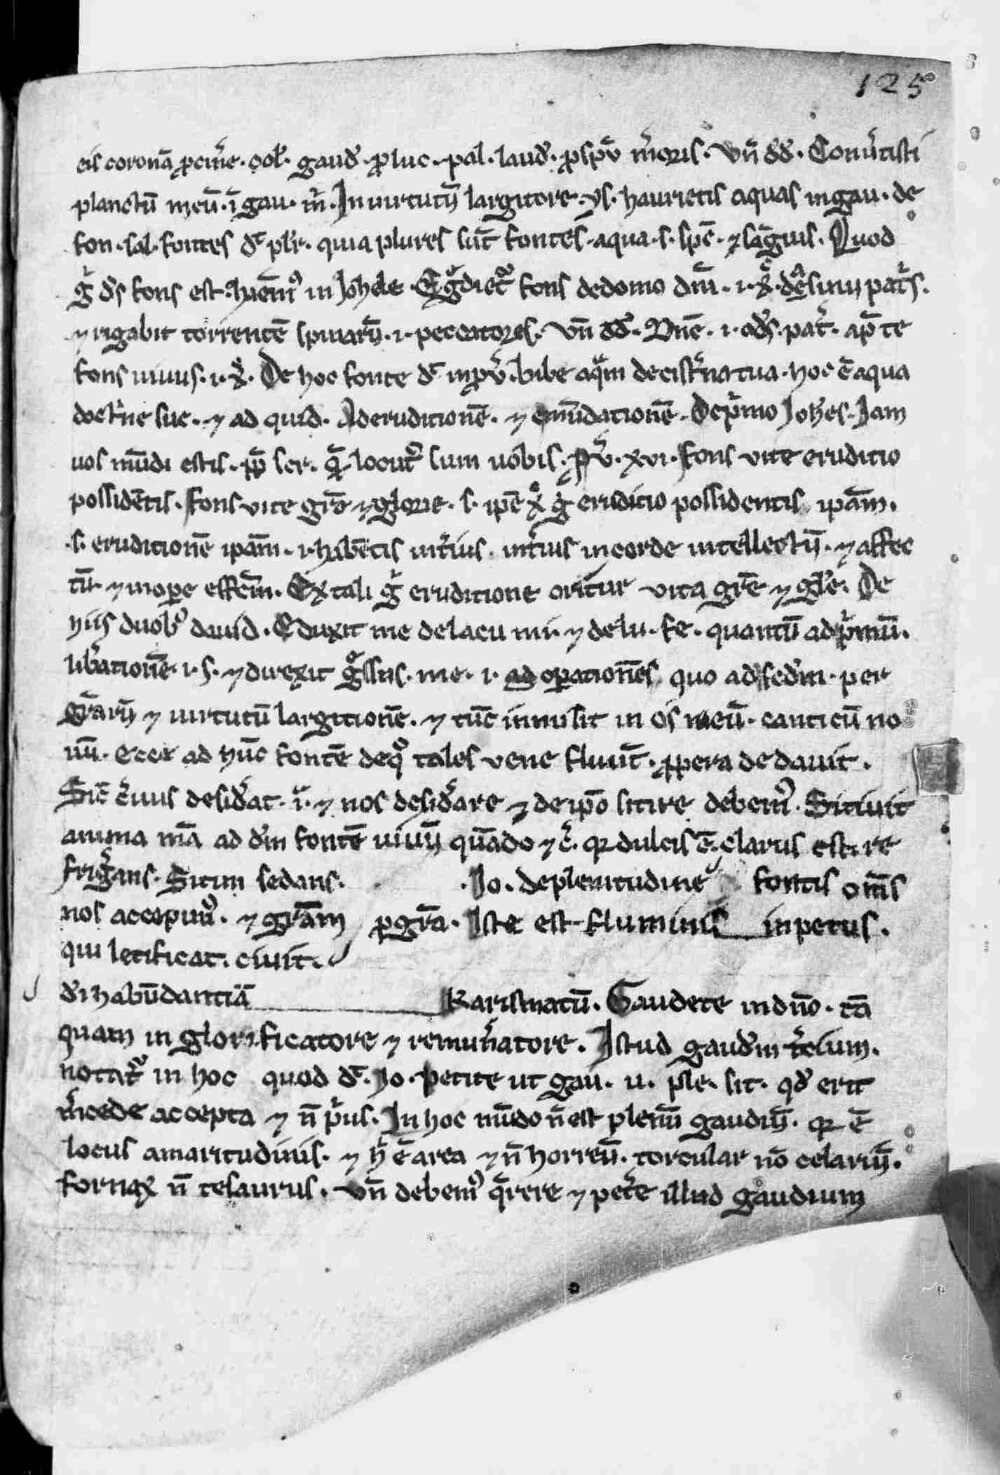 125
eis coronā ꝓ cin̄e · ꝯsol̄ · gaud̄ · ꝓ luc · pal · laud̄ · ꝓ sp̄u m̄oris · Vn̄ dd̄ · Conu̾tisti
planctū meū · ī gau · m̄ · In uirtutū largitore · ys · haurietis aquas in gau · de
fon · sal · fontes dr̄ plr̄ · quia plures sūt fontes · aqua · s · sp̄c · ⁊ sāguis · Quod
g̊ ds̄ fons est · hēm᷒ in Johele · Egdiet᷒ fons de domo dn̄i · i · xp̄c · de sinu pat̾s ·
⁊ rigabit torrentē spinarū · i · peccatores · Vn̄ dd̄ · Dn̄e · i · ods̄ · pat̾ · ap̄ te
fons uiuus · i · xp̄c · De hoc fonte dr̄ in pu̾ · bibe aq̄m de cist̾na tua · hoc ē aqua
doct̾ne sue · ⁊ ad quid · Ad eruditionē · ⁊ emūdationē · De p̾mo Joh̄es · Iam
uos mūdi estis · ꝓp̄ ser · q̄ locut᷒ sum uobis · Pu̾ · xvi · fons vite eruditio
possidētis · fons vite gr̄e ⁊ glorie · s · ip̄e xp̄c g̊ eruditio possidentis ip̄am ·
· s · eruditionē ip̄am · i · habētis int̾ius · int̾ius in corde intellectū · ⁊ affec
tū · ⁊ in oꝑe effc̄m · Ex tali g̊ eruditione oritur vita gr̄e ⁊ gl̄e · De
hiis duob᷒ dauid · Eduxit me de lacu mi · ⁊ de lu · fe · quantū ad p̾mū ·
lib̾ationē · i · s · ⁊ direxit g̊ssus · me · i · ad oꝑationes quo ad sc̄dm · per
gr̄arū ⁊ uirtutū largitionē · ⁊ tūc inmisit in os meū · canticū no
uū · ecce ad hūc fontē de q̊ tales vene fluūt · ꝓpera de dauit ·
Sic̄ c̾uus desid̾at · ī · ⁊ nos desid̾are ⁊ de ip̄o sitire debem᷒ · Sitiuit
anima mā ad dm̄ fontē uiuū quādo ⁊ c̾ · qr dulcis ē · clarus est · re
frig̾ans · Sitim sedans · · Jo · de plenitudine fontis om̄s
nos accepim᷒ · ⁊ grām ꝓ gr̄a · Iste est fluminis inpetus ·
qui letificat · ciuit ·
di habūdantiā karismatū · Gaudete in dn̄o · tā
quam in glorificatore ⁊ remun̾atore · Istud gaudm̄ t̾cium ·
notat᷒ in hoc quod dr̄ · Jo · Petite ut gau · u · ple · sit · qd̄ erit
m̾cede accepta ⁊ n̄ p̾us · In hoc mūdo n̄ est plenū gaudiū · qr ē
locus amaritudinis · ⁊ h̾ ē area ⁊ n̄ horreū · torcular nō celariū ·
fornax n̄ tesaurus · Vn̄ debem᷒ q̄rere ⁊ pet̾e illud gaudium